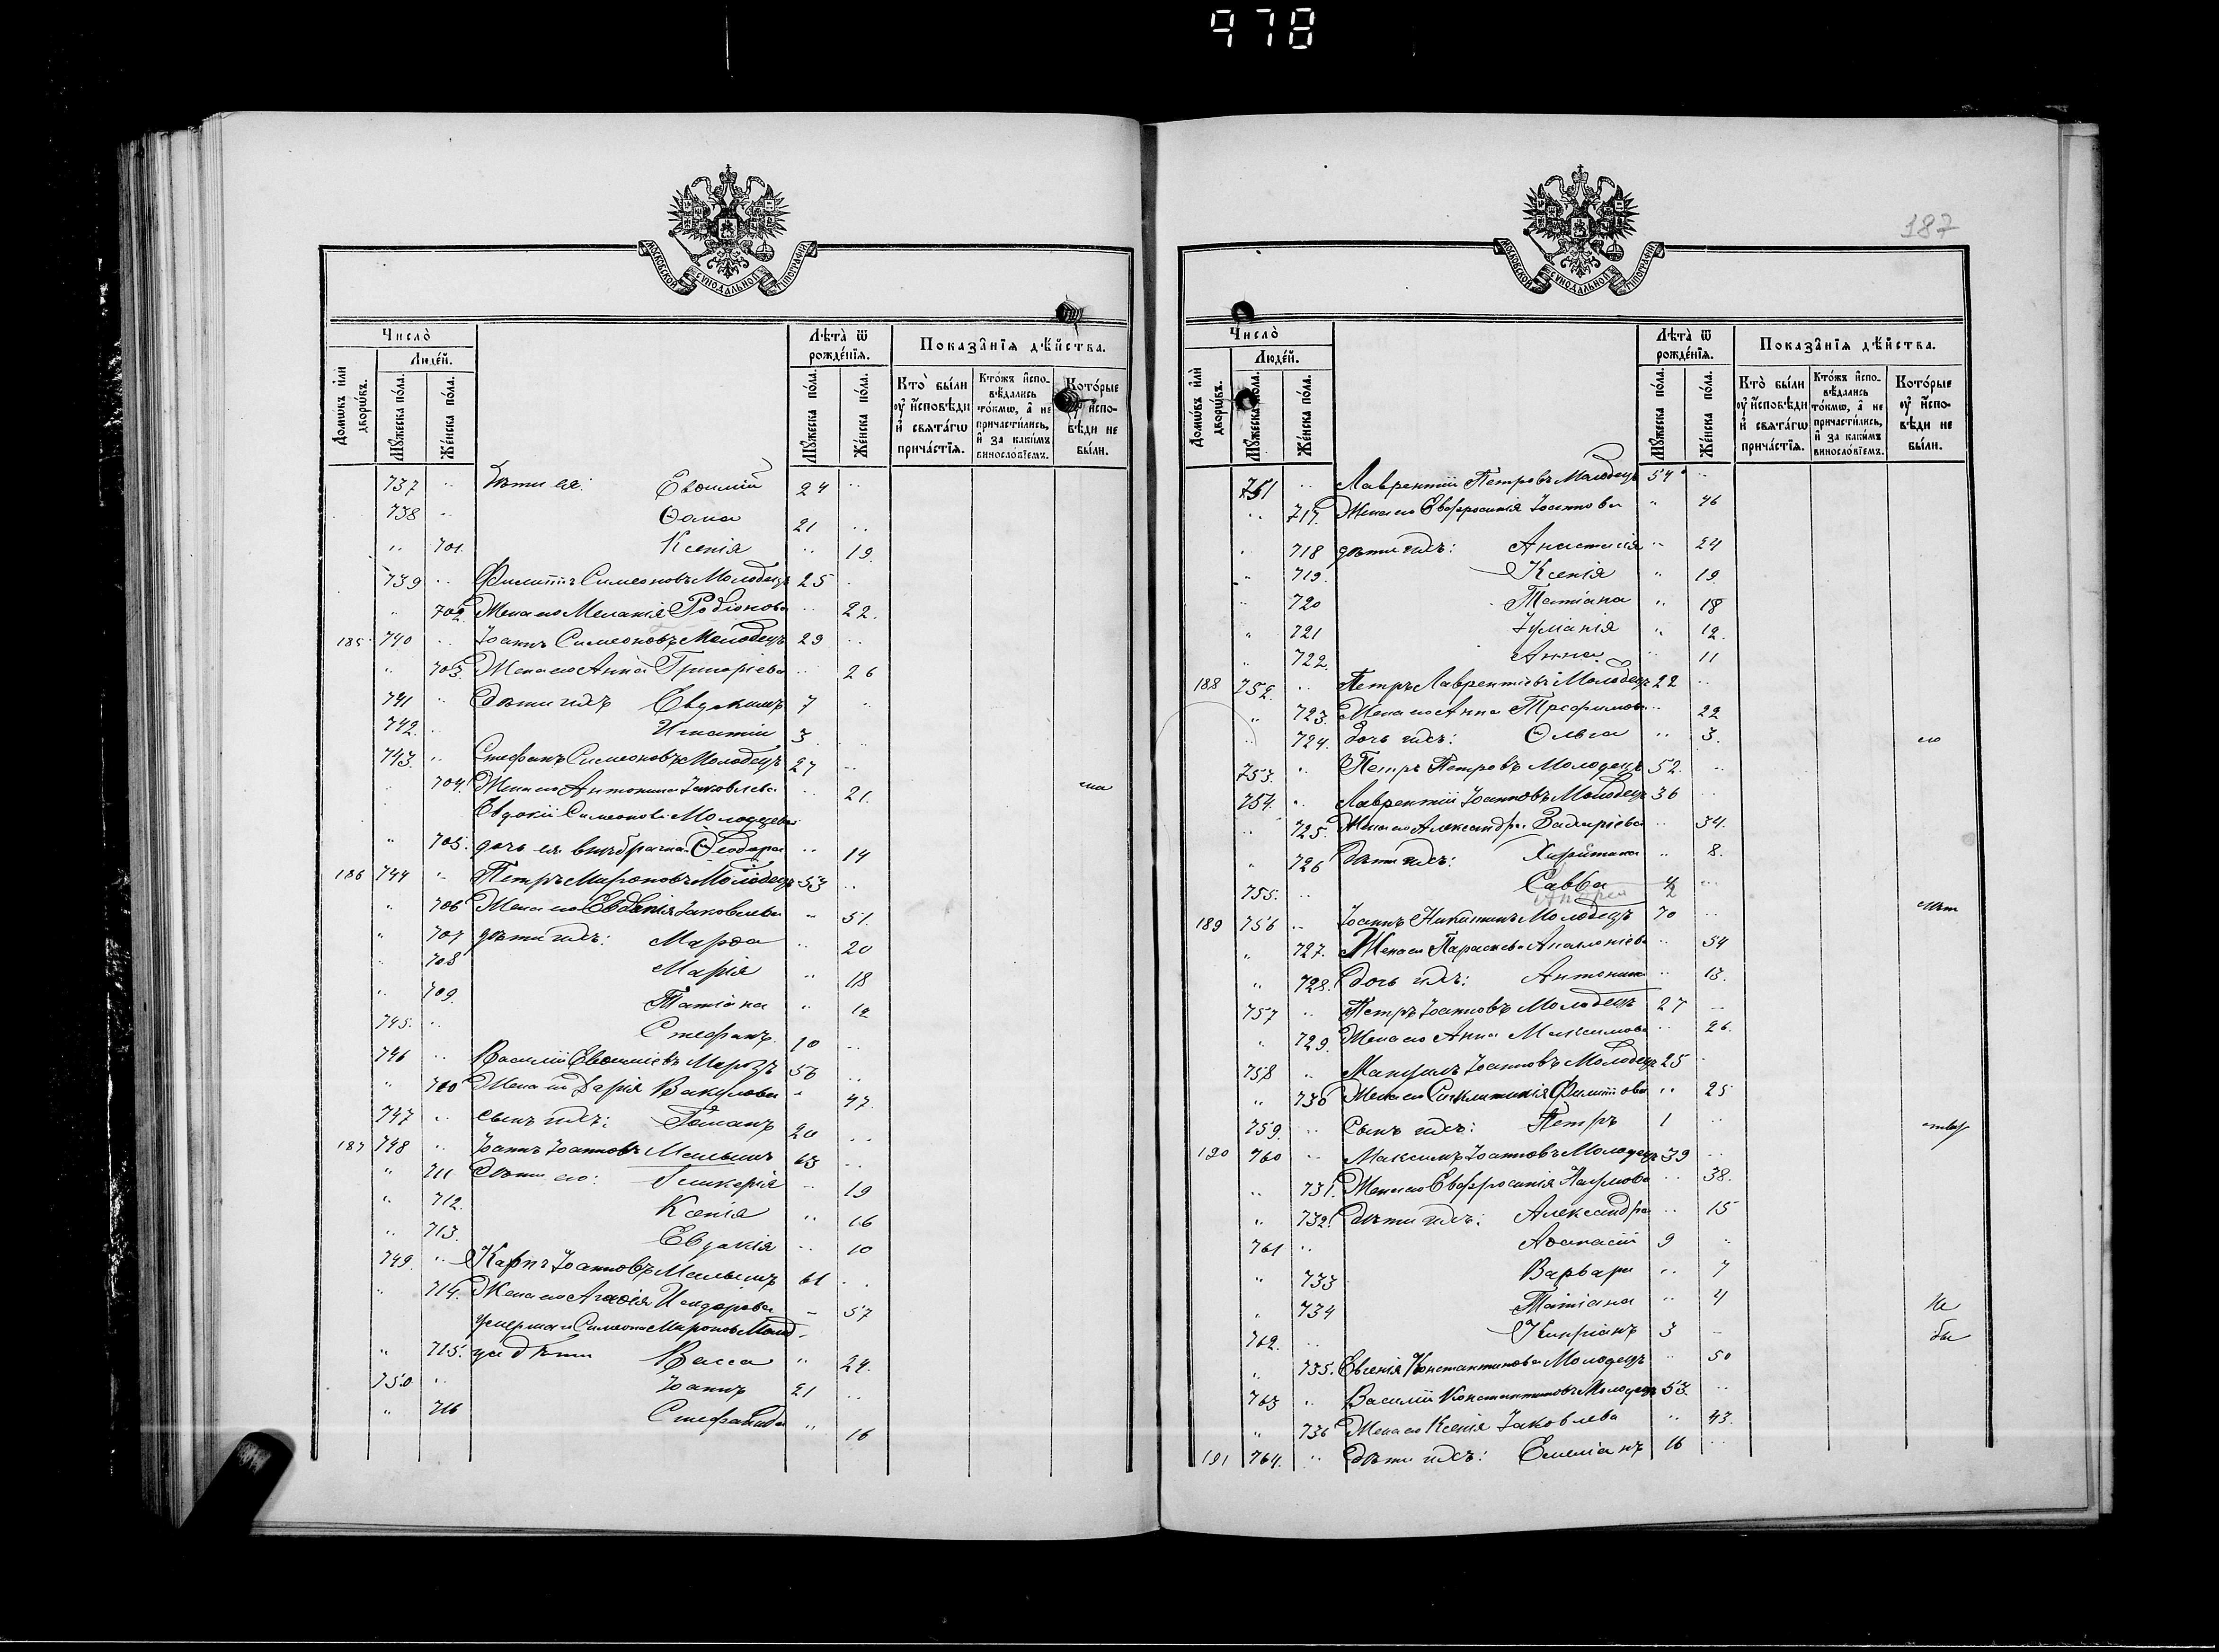 978
МОСКОВСКОЙ СѴНОДАЛЬНОЙ ТИПОГРАФІИ
Число̀
Людéй.
Домѡ́въ и҆лѝ дворѡ́въ.
Мꙋ́жеска по́ла.
Же́нска по́ла.
Лѣта̀ ѿ рожде́нїѧ.
Мꙋ́жеска по́ла.
Же́нска по́ла.
Показа̑нїѧ дѣ́йства.
Кто̀ бы́ли оу҆ и҆сповѣди и҆ свѧта́гѡ прича́стїѧ.
Кто́жъ и҆спо-вѣдались то́кмѡ, а҆ не причасти́лись, и҆ за каки́мъ винослов́їемъ.
Кото́рые оу҆ и҆спо-вѣди не бы́ли.
737 " Дѣти ея: Евѳимій 24 "
738 " Ѳома 21 "
" 701. Ксенія " 19.
739 " Филиппъ Симеоновъ Молодецъ 25 "
" 702. Жена его Меланія Родіонова " 22.
185 740 " Іоаннъ Симеоновъ Молодецъ 29 "
" 703. Жена его Анна Григоріева " 26
741 " Дѣти ихъ Евдокимъ 7 "
742. " Игнатій 3 "
743. " Стефанъ Симеоновъ Молодецъ 27 "
" 704. Жена его Антонина Іаковлева " 21.
Евдокіи Симеоновой Молодецевой
" 705. дочь ея внѣбрачная Ѳеодора " 14
186 744 " Петръ Мироновъ Молодецъ 53 "
" 706 Жена его Евдокія Іаковлева " 51.
" 707 дѣти ихъ: Марѳа " 20
" 708 Марія " 18
" 709. Татіана " 12
745. " Стефанъ 10 "
746 " Василій Евѳиміевъ 56 "
" 710 Жена его Дарія Вакулова " 47
747 " сынъ ихъ: Романъ 20 "
187 748 " Іоаннъ Іоанновъ 63 "
" 711 Дѣти его: Гликерія " 19
" 712. Ксенія " 16
" 713. Евдокія " 10
749. " Карпъ Іоанновъ 61 "
" 714. Жена его Агаѳія " 57
умершаго Симеона Миронова Молод-
" 715. ца дѣти Васса " 24.
750 " Іоаннъ 21 "
" 716 Стефанида " 16
на
187
МОСКОВСКОЙ СѴНОДАЛЬНОЙ ТИПОГРАФІИ
Число̀
Людéй.
Домѡ́въ и҆лѝ дворѡ́въ.
Мꙋ́жеска по́ла.
Же́нска по́ла.
Лѣта̀ ѿ рожде́нїѧ.
Мꙋ́жеска по́ла.
Же́нска по́ла.
Показа̑нїѧ дѣ́йства.
Кто̀ бы́ли оу҆ и҆сповѣди и҆ свѧта́гѡ прича́стїѧ.
Кто́жъ и҆спо-вѣдались то́кмѡ, а҆ не причасти́лись, и҆ за каки́мъ винослов́їемъ.
Кото́рые оу҆ и҆спо-вѣди не бы́ли.
751 " Лаврентій Петровъ Молодецъ 54 "
" 717. Жена его Евфросинія Іоаннова " 46
" 718 дѣти ихъ: Анастасія " 24
" 719. Ксенія " 19
" 720 Татіана " 18
" 721 Іуліанія " 12.
" 722. Анна " 11
188 752. " Петръ Лаврентіевъ Молодецъ 22 "
" 723. Жена его Анна Трофимова " 22
" 724. дочь ихъ: Ольга " 3.
753. " Петръ Петровъ Молодецъ 52. "
754. " Лаврентій Іоанновъ Молодецъ 36 "
" 725. Жена его Александра Захаріева " 34.
" 726 Дѣти ихъ: Харитина " 8.
755. " Савва 4 "
Андрей 2
189 756 " Іоаннъ Никитинъ Молодецъ 70 "
" 727. Жена его Параскева " 54
" 728. дочь ихъ: Антонина " 13.
757 " Петръ Іоанновъ Молодецъ 27 "
" 729. Жена его Анна Максимова " 26.
758 " Мануилъ Іоанновъ Молодецъ 25 "
" 730 Жена его Синклитикія Филиппова " 25
759. " Сынъ ихъ: Петръ 1 "
190 760 " Максимъ Іоанновъ Молодецъ 39 "
" 731. Жена его Евфросинія Наумова " 38.
" 732. Дѣти ихъ: Александра " 15
761 " Аѳанасій 9 "
" 733 Варвара " 7
" 734 Татіана " 4
762. " Кипріанъ 3 "
" 735. Евгенія Константинова Молодецъ " 50
763 " Василій Константиновъ Молодецъ 53. "
" 736 Жена его Ксенія Іаковлева " 43.
191 764. " Дѣти ихъ: Емеліанъ 16 "
Не